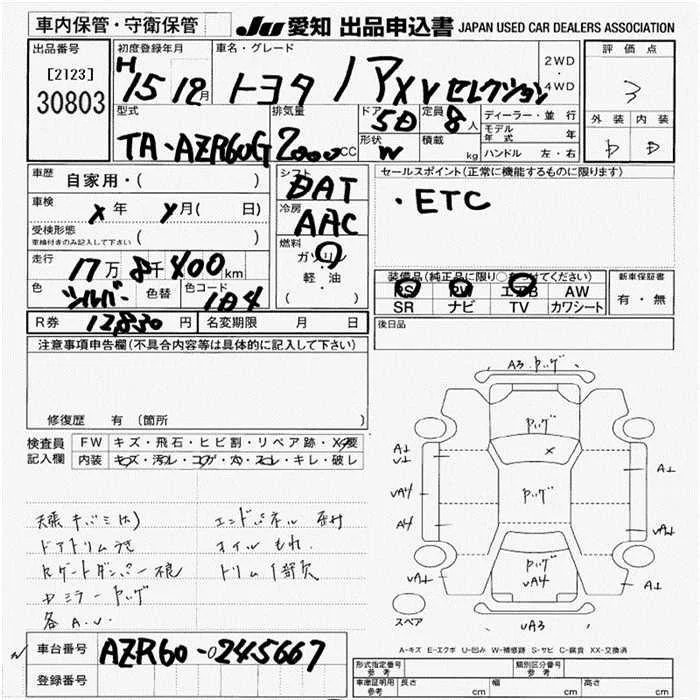 車内保管・守衛保管
JU 愛知 出品申込書 JAPAN USED CAR DEALERS ASSOCIATION
出品番号
[2123]
30803
初度登録年月
H 15 12月
車名・グレード
トヨタ ノア XV セレクション
2WD
・
4WD
評価点
3
外装 内装
D D
型式
TA-AZR60G
排気量
2000cc
ドア
5D
形状
W
定員
8人
積載
kg
ディーラー・並行
モデル年式 年
ハンドル 左・右
車歴
自家用・( )
車検
x年 x月( 日)
受検形態
車検付きのみ記入して下さい ( )
走行
17万8千400km
色
シルバー
色替
色コード
1D4
シフト
DAT
冷房
AAC
燃料
ガソリン
・
軽・油
( )
セールスポイント(正常に機能するものに限ります)
・ETC
装備品(純正品に限り○をつけてください)
PS PW エアB AW
SR ナビ TV カワシート
新車保証書
有・無
後日品
R券 12,830円 名変期限 月 日
注意事項申告欄(不具合内容等は具体的に記入して下さい)
修復歴 有 (箇所 )
検査員
記入欄
FW キズ・飛石・ヒビ割・リペア跡・X要
内装 キズ・汚レ・コゲ・穴・スレ・キレ・破レ
天張キバミ(大)
ドアトリムうき
Rゲートダンパー不良
ドミラーヤッグ
各A.U.
エンドパネル 歪み
オイルもれ.
トリム1部欠
A3 ヤッグ
ヤッグ
x
A1
U1
UA4
A4
ヤッグ
A1
UA1
UA1
ヤッグ
UA4
A1
UA3
スペア
A-キズ E-エクボ U-凹み W-補修跡 S-サビ C-腐食 XX-交換済
車台番号
AZR60-0245667
登録番号
形式指定番号
参考
類別区分番号
参考
車庫証明用
参考
長さ cm 幅 cm 高さ cm